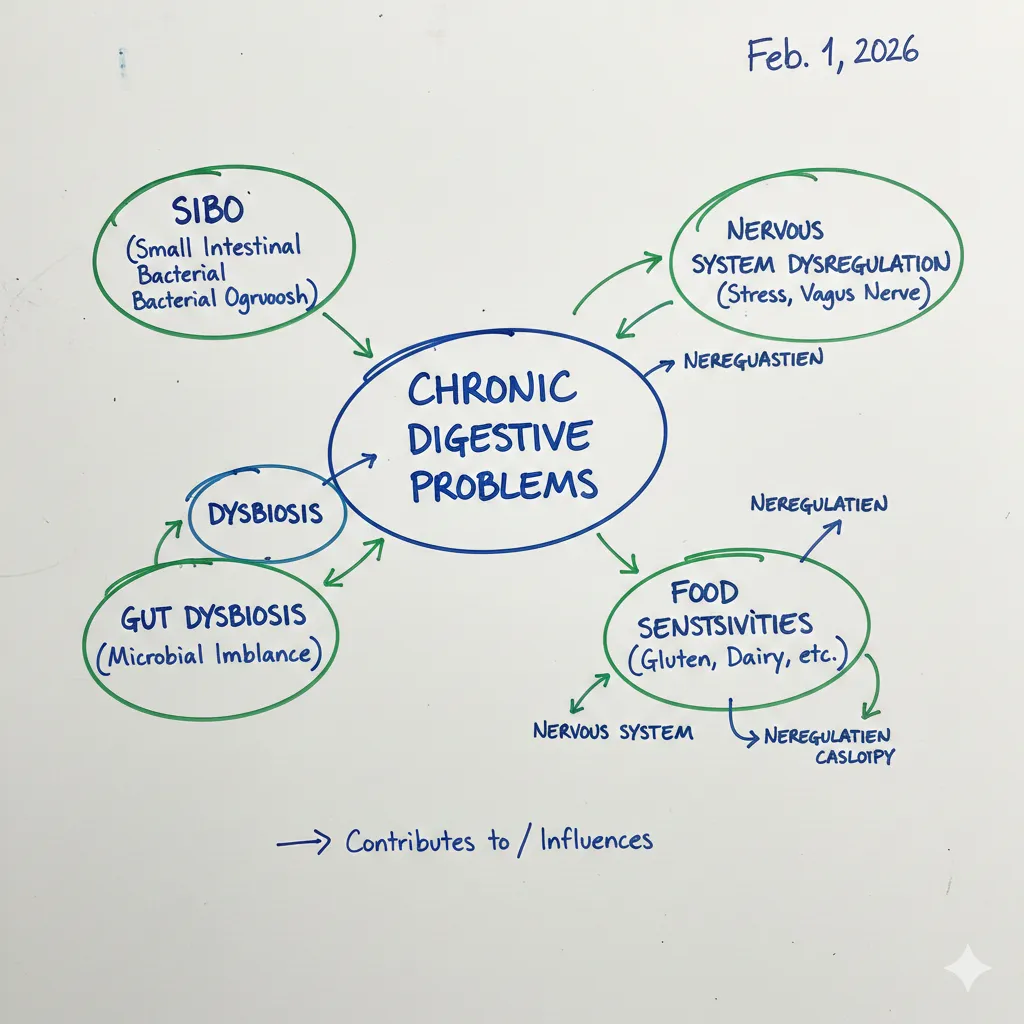 Feb. 1, 2026
SIBO
(Small Intestinal
Bacterial
Bacterial Ogruoosh)
NERVOUS
SYSTEM DYSREGULATION
(Stress, Vagus Nerve)
NEREGUASTIEN
CHRONIC
DIGESTIVE
PROBLEMS
DYSBIOSIS
GUT DYSBIOSIS
(Microbial Imblance)
NEREGULATIEN
FOOD
SENSTSIVITIES
(Gluten, Dairy, etc.)
NERVOUS SYSTEM
NEREGULATIEN
CASLOTPY
Contributes to / Influences